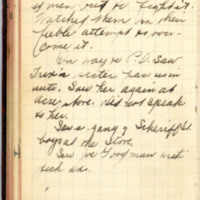 men out to fight it.
Watched them in their
feble attempt to over-
come it.
On way to P.O. Saw
Trix's sister pas us in
auto. Saw her again at
acre store. Did not speak
to her.
Saw a gang of Scheriff St
boys at the Store.
Saw Joe Goodman with
pick axe.